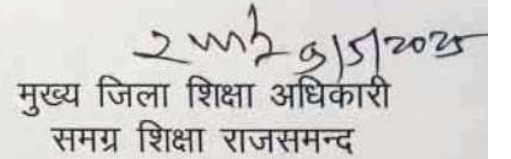 9/5/2025
मुख्य जिला शिक्षा अधिकारी
समग्र शिक्षा राजसमन्द